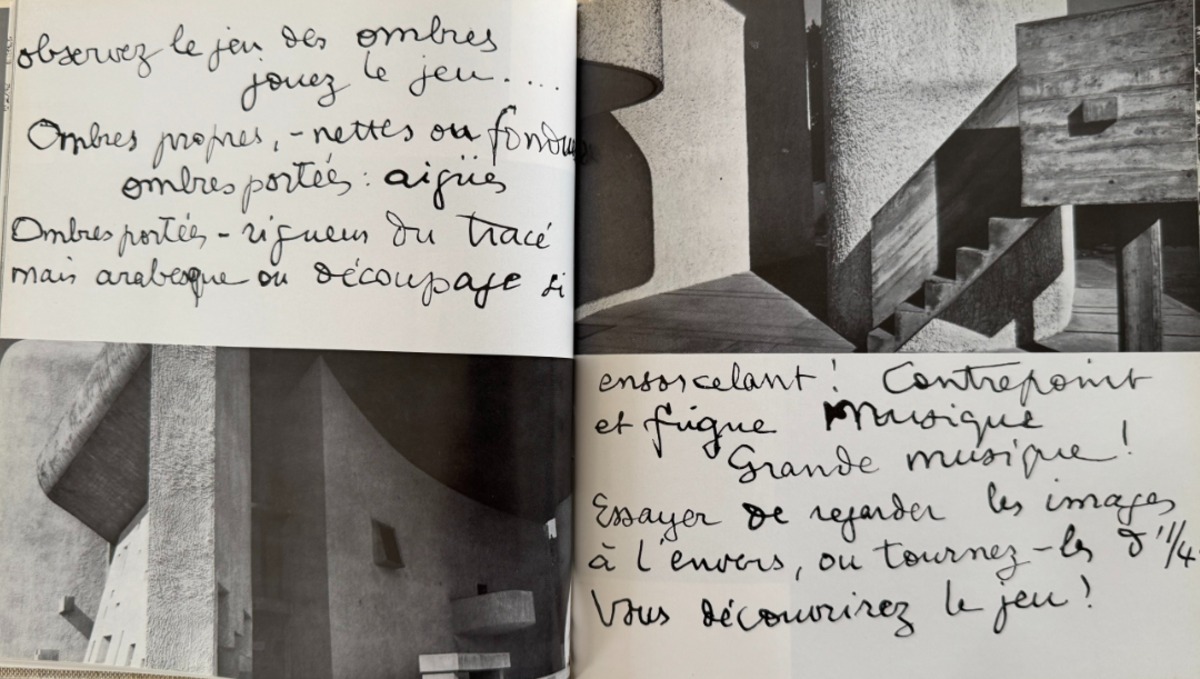 observez le jeu des ombres
jouez le jeu....
Ombres propres, - nettes ou fondues
ombres portées : aigües
Ombres portées - rigueur du tracé
mais arabesque ou découpage si
ensorcelant ! Contrepoint
et fugue Musique
Grande musique !
Essayer de regarder les images
à l'envers, ou tournez-les d'1/4.
Vous découvrirez le jeu !